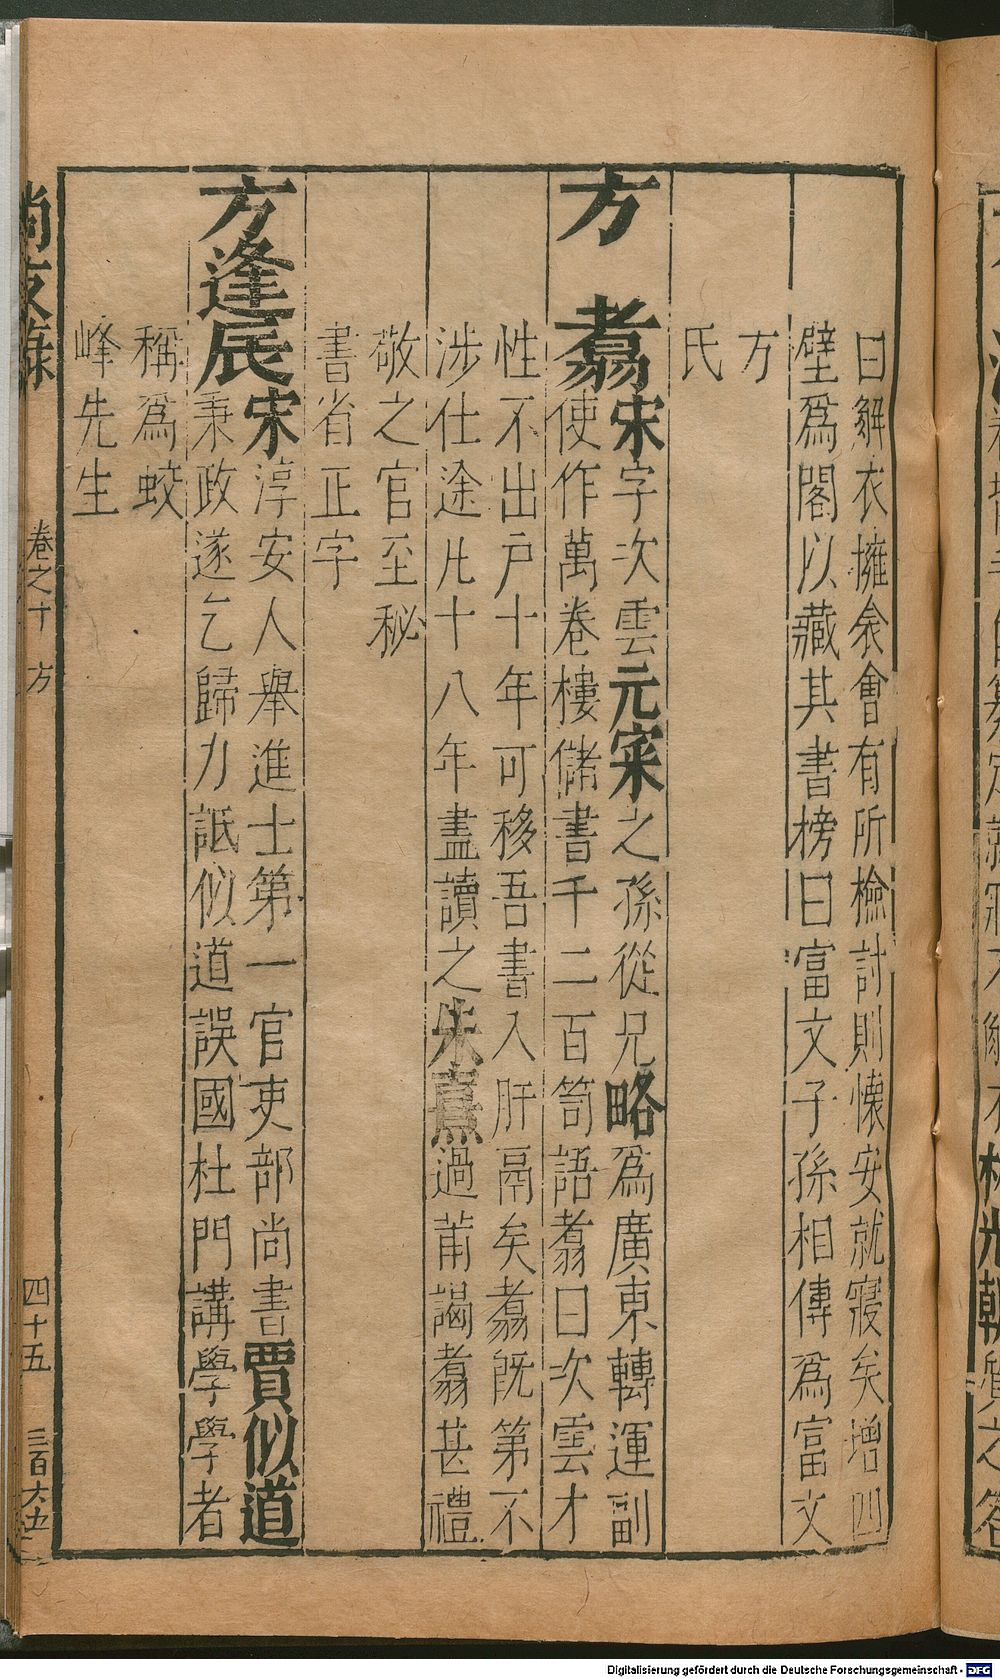 曰解衣擁衾會有所檢討則懷安就寢矣增四
壁為閣以藏其書榜曰富文子孫相傳為富文
方
氏
方翥宋字次雲元寀之孫從兄略為廣東轉運副
使作萬卷樓儲書千二百笥語翥曰次雲才
性不出戶十年可移吾書入肝鬲矣翥既第不
涉仕途凡十八年盡讀之朱熹過莆謁翥甚禮
敬之官至秘
書省正字
方逢辰宋淳安人舉進士第一官吏部尚書賈似道
秉政遂乞歸力詆似道誤國杜門講學學者
稱為蛟
峰先生
尚友錄 卷之十 方 四十五 三百六五
Digitalisierung gefördert durch die Deutsche Forschungsgemeinschaft - DFG